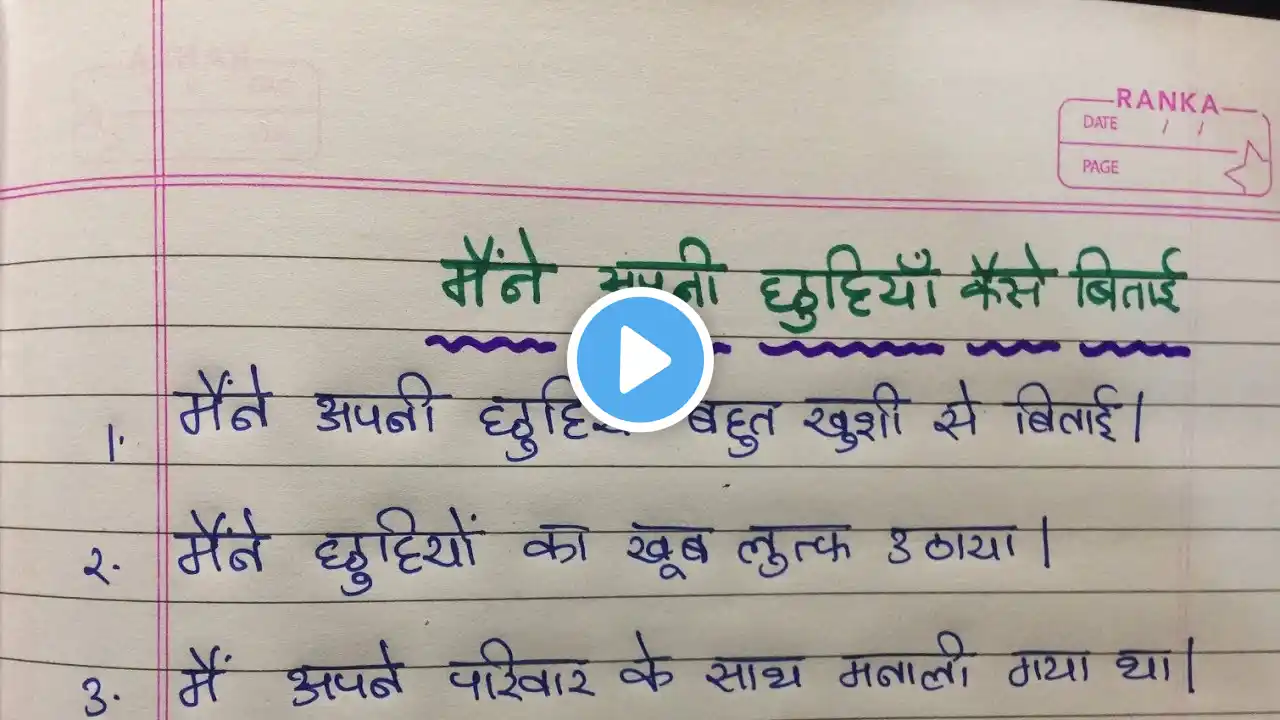 RANKA
DATE / /
PAGE
मैंने अपनी छुट्टियाँ कैसे बिताई
1. मैंने अपनी बहुत खुशी से बिताई।
२. मैंने छुट्टियों का खूब लुत्फ उठाया।
३. मैं अपने परिवार के साथ मनाली गया था।